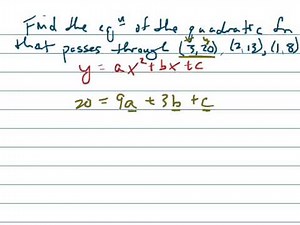 Find the eqⁿ of the quadratic fn
that passes through (3,20), (2,13), (1,8)
y = ax² + bx + c
20 = 9a + 3b + c